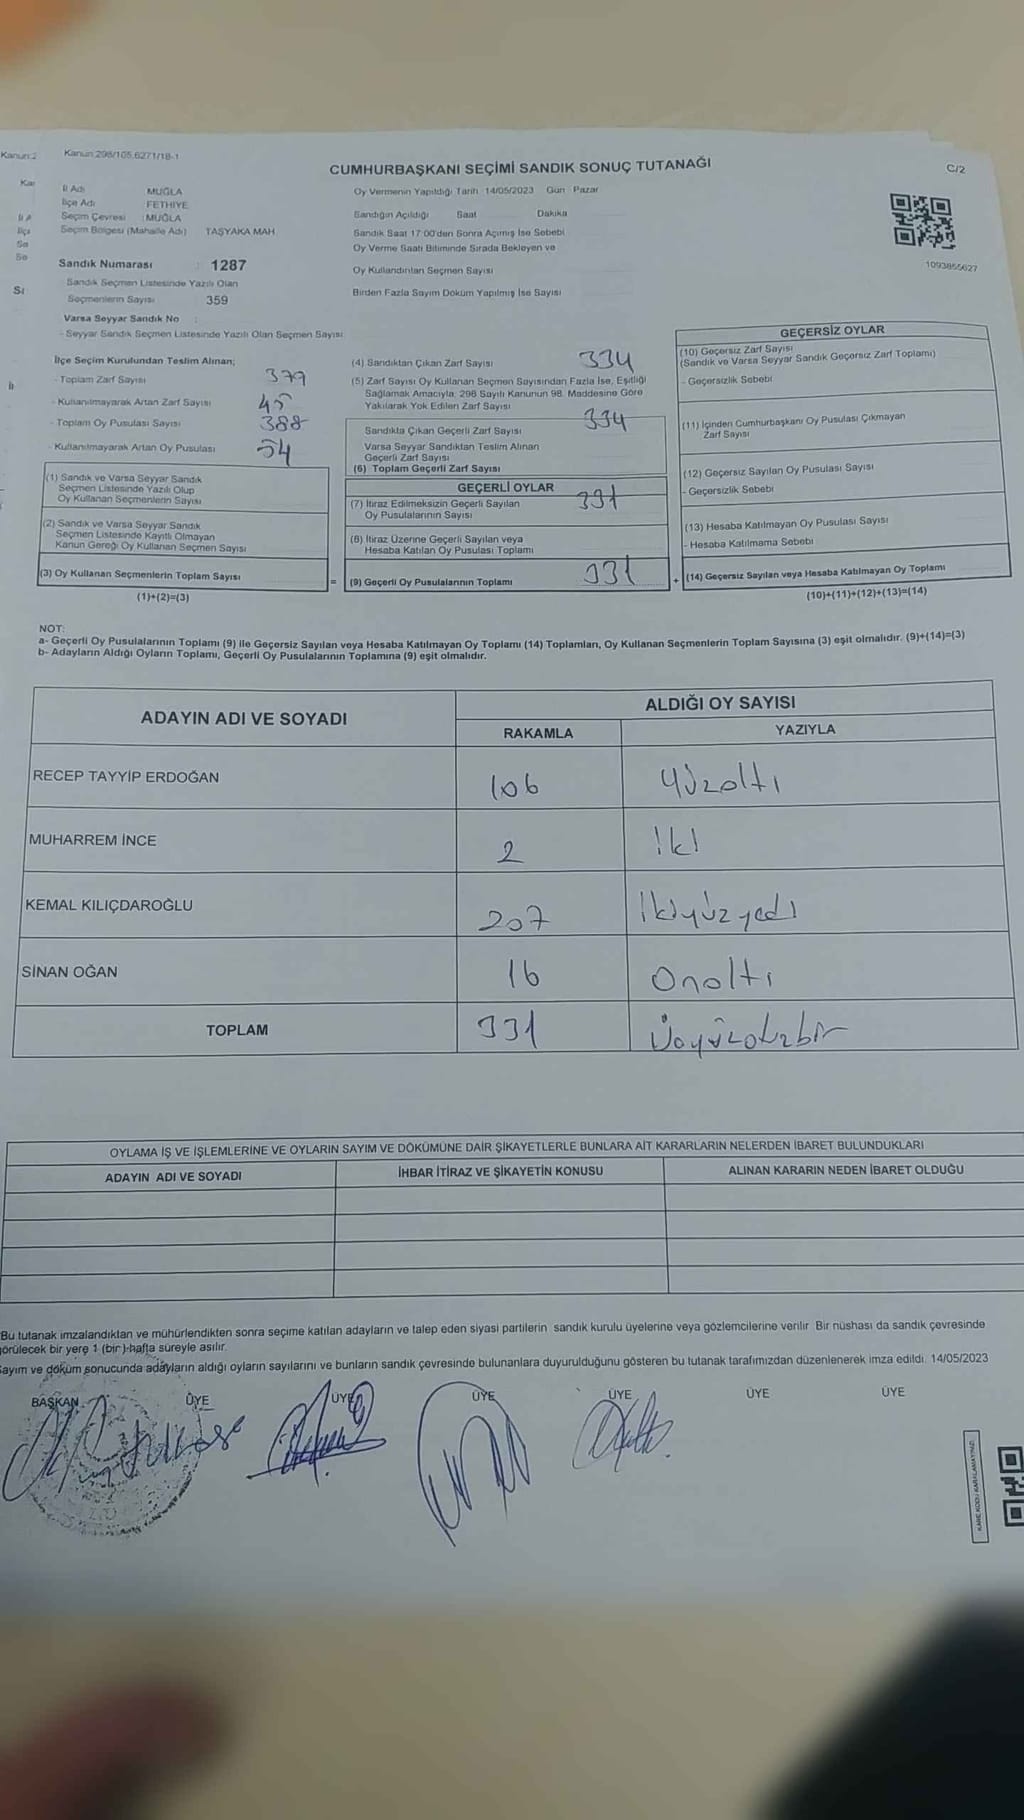 Kanun:298/105,6271/18-1
CUMHURBAŞKANI SEÇİMİ SANDIK SONUÇ TUTANAĞI
C/2
İl Adı : MUĞLA
İlçe Adı : FETHİYE
Seçim Çevresi : MUĞLA
Seçim Bölgesi (Mahalle Adı) : TAŞYAKA MAH.
Sandık Numarası : 1287
Sandık Seçmen Listesinde Yazılı Olan
Seçmenlerin Sayısı : 359
Varsa Seyyar Sandık No :
- Seyyar Sandık Seçmen Listesinde Yazılı Olan Seçmen Sayısı:
Oy Vermenin Yapıldığı Tarih: 14/05/2023 Gün : Pazar
Sandığın Açıldığı Saat Dakika
Sandık Saat 17:00'den Sonra Açılmış İse Sebebi
Oy Verme Saati Bitiminde Sırada Bekleyen ve
Oy Kullandırılan Seçmen Sayısı
Birden Fazla Sayım Döküm Yapılmış İse Sayısı
1093855627
İlçe Seçim Kurulundan Teslim Alınan;
- Toplam Zarf Sayısı 379
- Kullanılmayarak Artan Zarf Sayısı 45
- Toplam Oy Pusulası Sayısı 388
- Kullanılmayarak Artan Oy Pusulası 54
(1) Sandık ve Varsa Seyyar Sandık
Seçmen Listesinde Yazılı Olup
Oy Kullanan Seçmenlerin Sayısı
(2) Sandık ve Varsa Seyyar Sandık
Seçmen Listesinde Kayıtlı Olmayan
Kanun Gereği Oy Kullanan Seçmen Sayısı
(3) Oy Kullanan Seçmenlerin Toplam Sayısı
(1)+(2)=(3)
(4) Sandıktan Çıkan Zarf Sayısı 334
(5) Zarf Sayısı Oy Kullanan Seçmen Sayısından Fazla İse, Eşitliği
Sağlamak Amacıyla, 298 Sayılı Kanunun 98. Maddesine Göre
Yakılarak Yok Edilen Zarf Sayısı
Sandıkta Çıkan Geçerli Zarf Sayısı 334
Varsa Seyyar Sandıktan Teslim Alınan
Geçerli Zarf Sayısı
(6) Toplam Geçerli Zarf Sayısı
GEÇERLİ OYLAR
(7) İtiraz Edilmeksizin Geçerli Sayılan 331
Oy Pusulalarının Sayısı
(8) İtiraz Üzerine Geçerli Sayılan veya
Hesaba Katılan Oy Pusulası Toplamı
= (9) Geçerli Oy Pusulalarının Toplamı 331
GEÇERSİZ OYLAR
(10) Geçersiz Zarf Sayısı
(Sandık ve Varsa Seyyar Sandık Geçersiz Zarf Toplamı)
- Geçersizlik Sebebi
(11) İçinden Cumhurbaşkanı Oy Pusulası Çıkmayan
Zarf Sayısı
(12) Geçersiz Sayılan Oy Pusulası Sayısı
- Geçersizlik Sebebi
(13) Hesaba Katılmayan Oy Pusulası Sayısı
- Hesaba Katılmama Sebebi
+ (14) Geçersiz Sayılan veya Hesaba Katılmayan Oy Toplamı
(10)+(11)+(12)+(13)=(14)
NOT:
a- Geçerli Oy Pusulalarının Toplamı (9) ile Geçersiz Sayılan veya Hesaba Katılmayan Oy Toplamı (14) Toplamları, Oy Kullanan Seçmenlerin Toplam Sayısına (3) eşit olmalıdır. (9)+(14)=(3)
b- Adayların Aldığı Oyların Toplamı, Geçerli Oy Pusulalarının Toplamına (9) eşit olmalıdır.
ADAYIN ADI VE SOYADI
ALDIĞI OY SAYISI
RAKAMLA YAZIYLA
RECEP TAYYİP ERDOĞAN 106 Yüzaltı
MUHARREM İNCE 2 İki
KEMAL KILIÇDAROĞLU 207 İkiyüzyedi
SİNAN OĞAN 16 Onaltı
TOPLAM 331 Üçyüzotuzbir
OYLAMA İŞ VE İŞLEMLERİNE VE OYLARIN SAYIM VE DÖKÜMÜNE DAİR ŞİKAYETLERLE BUNLARA AİT KARARLARIN NELERDEN İBARET BULUNDUKLARI
ADAYIN ADI VE SOYADI İHBAR İTİRAZ VE ŞİKAYETİN KONUSU ALINAN KARARIN NEDEN İBARET OLDUĞU
Bu tutanak imzalandıktan ve mühürlendikten sonra seçime katılan adayların ve talep eden siyasi partilerin sandık kurulu üyelerine veya gözlemcilerine verilir. Bir nüshası da sandık çevresinde
görülecek bir yere 1 (bir) hafta süreyle asılır.
Sayım ve döküm sonucunda adayların aldığı oyların sayılarını ve bunların sandık çevresinde bulunanlara duyurulduğunu gösteren bu tutanak tarafımızdan düzenlenerek imza edildi. 14/05/2023
BAŞKAN ÜYE ÜYE ÜYE ÜYE ÜYE ÜYE
KARE KODU KARALAMAYINIZ!